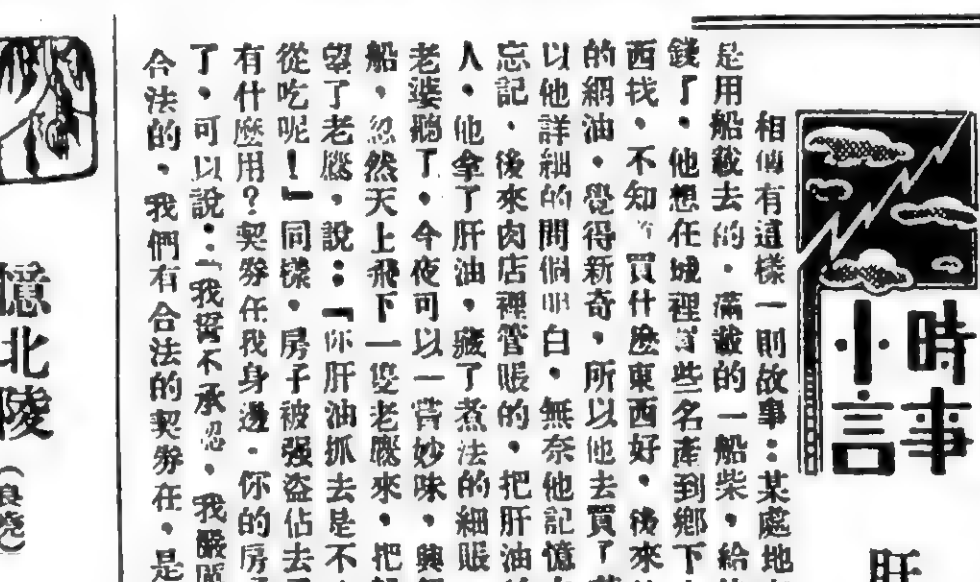 時事
小言
肝
相傳有這樣一則故事：某處地
是用船載去的，滿載的一船柴，給
錢了，他想在城裡 些名產到鄉下
西找，不知 買什麼東西好，後來
的網油，覺得新奇，所以他去買了
以他詳細的問個明白，無奈他記憶
忘記，後來肉店裡管賬的，把肝油
人，他拿了肝油，藏了煮法的細賬
老婆鵝了，今夜可以一嘗妙味，興
船，忽然天上飛下一隻老鷹來，把
望了老鷹，說：「你肝油抓去是不
從吃呢！」同樣，房子被强盜佔去
有什麼用？契券在我身邊，你的房
了，可以說：「我誓不承認，我嚴
合法的，我們有合法的契券在，是
憶北陵
（浪